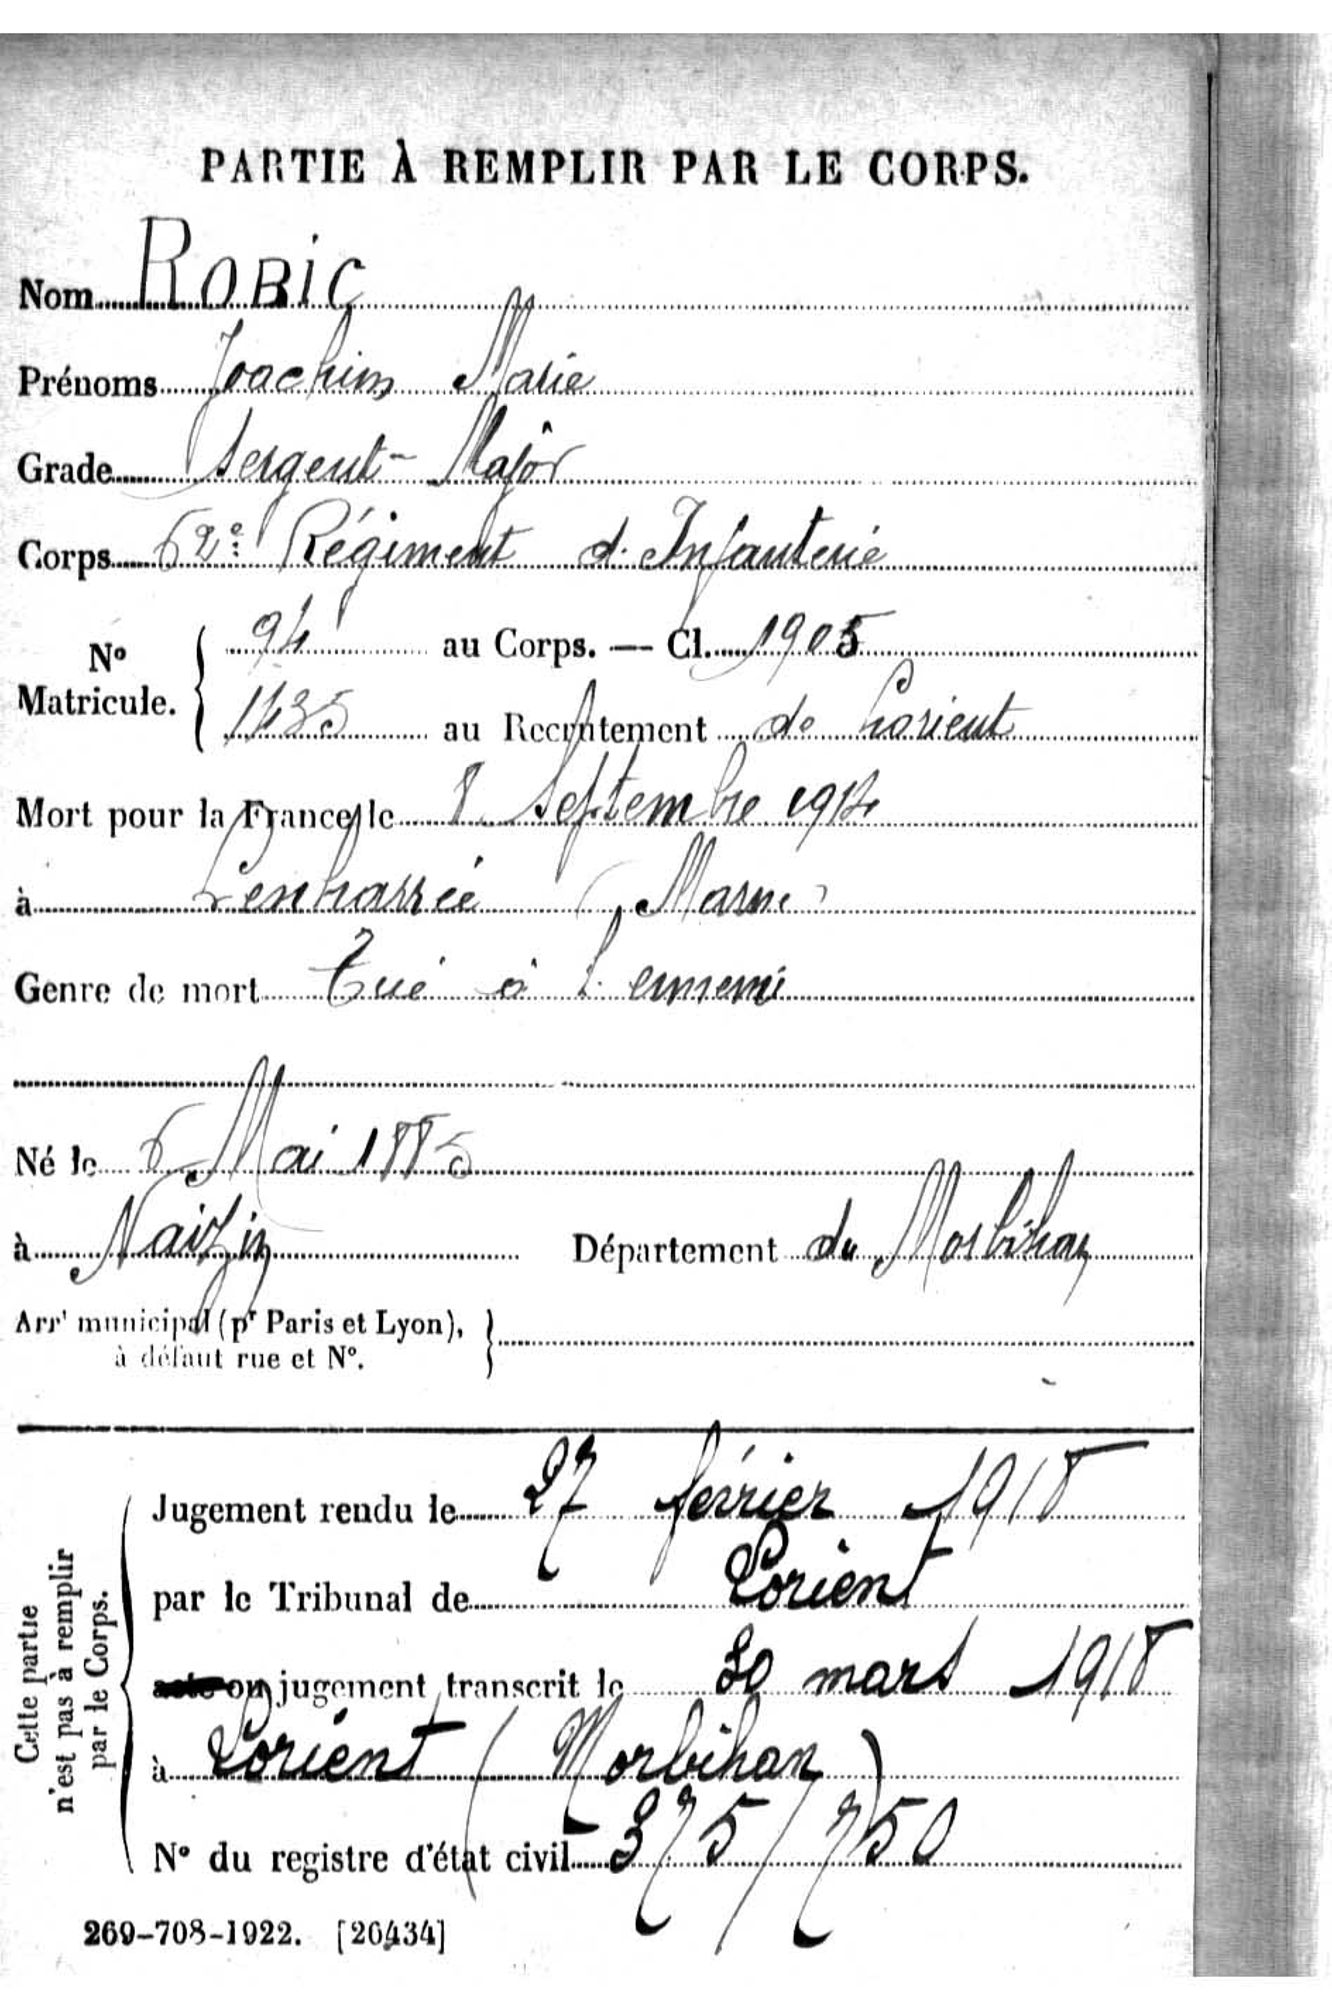 PARTIE À REMPLIR PAR LE CORPS.
Nom ROBIC
Prénoms Joachim Marie
Grade Sergent-Major
Corps 62e Régiment d'Infanterie
No Matricule. { 94 au Corps. — Cl. 1905
1435 au Recrutement de Lorient
Mort pour la France le 8 Septembre 1914
à Lenharrée (Marne)
Genre de mort Tué à l'ennemi
Né le 6 Mai 1885
à Naizin Département du Morbihan
Arrt municipal (pr Paris et Lyon),
à défaut rue et No.
Cette partie
n'est pas à remplir
par le Corps.
Jugement rendu le 27 février 1918
par le Tribunal de Lorient
acte ou jugement transcrit le 30 mars 1918
à Lorient (Morbihan)
No du registre d'état civil 375/750
269-708-1922. [26434]